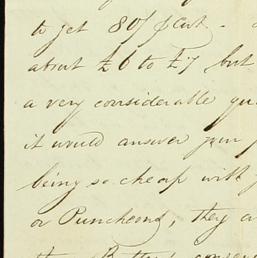 to get 80/ p Cwt -
about £6 to £7 but
a very considerable qu
it would answer your p
being so cheap with
or Puncheons, they a
the